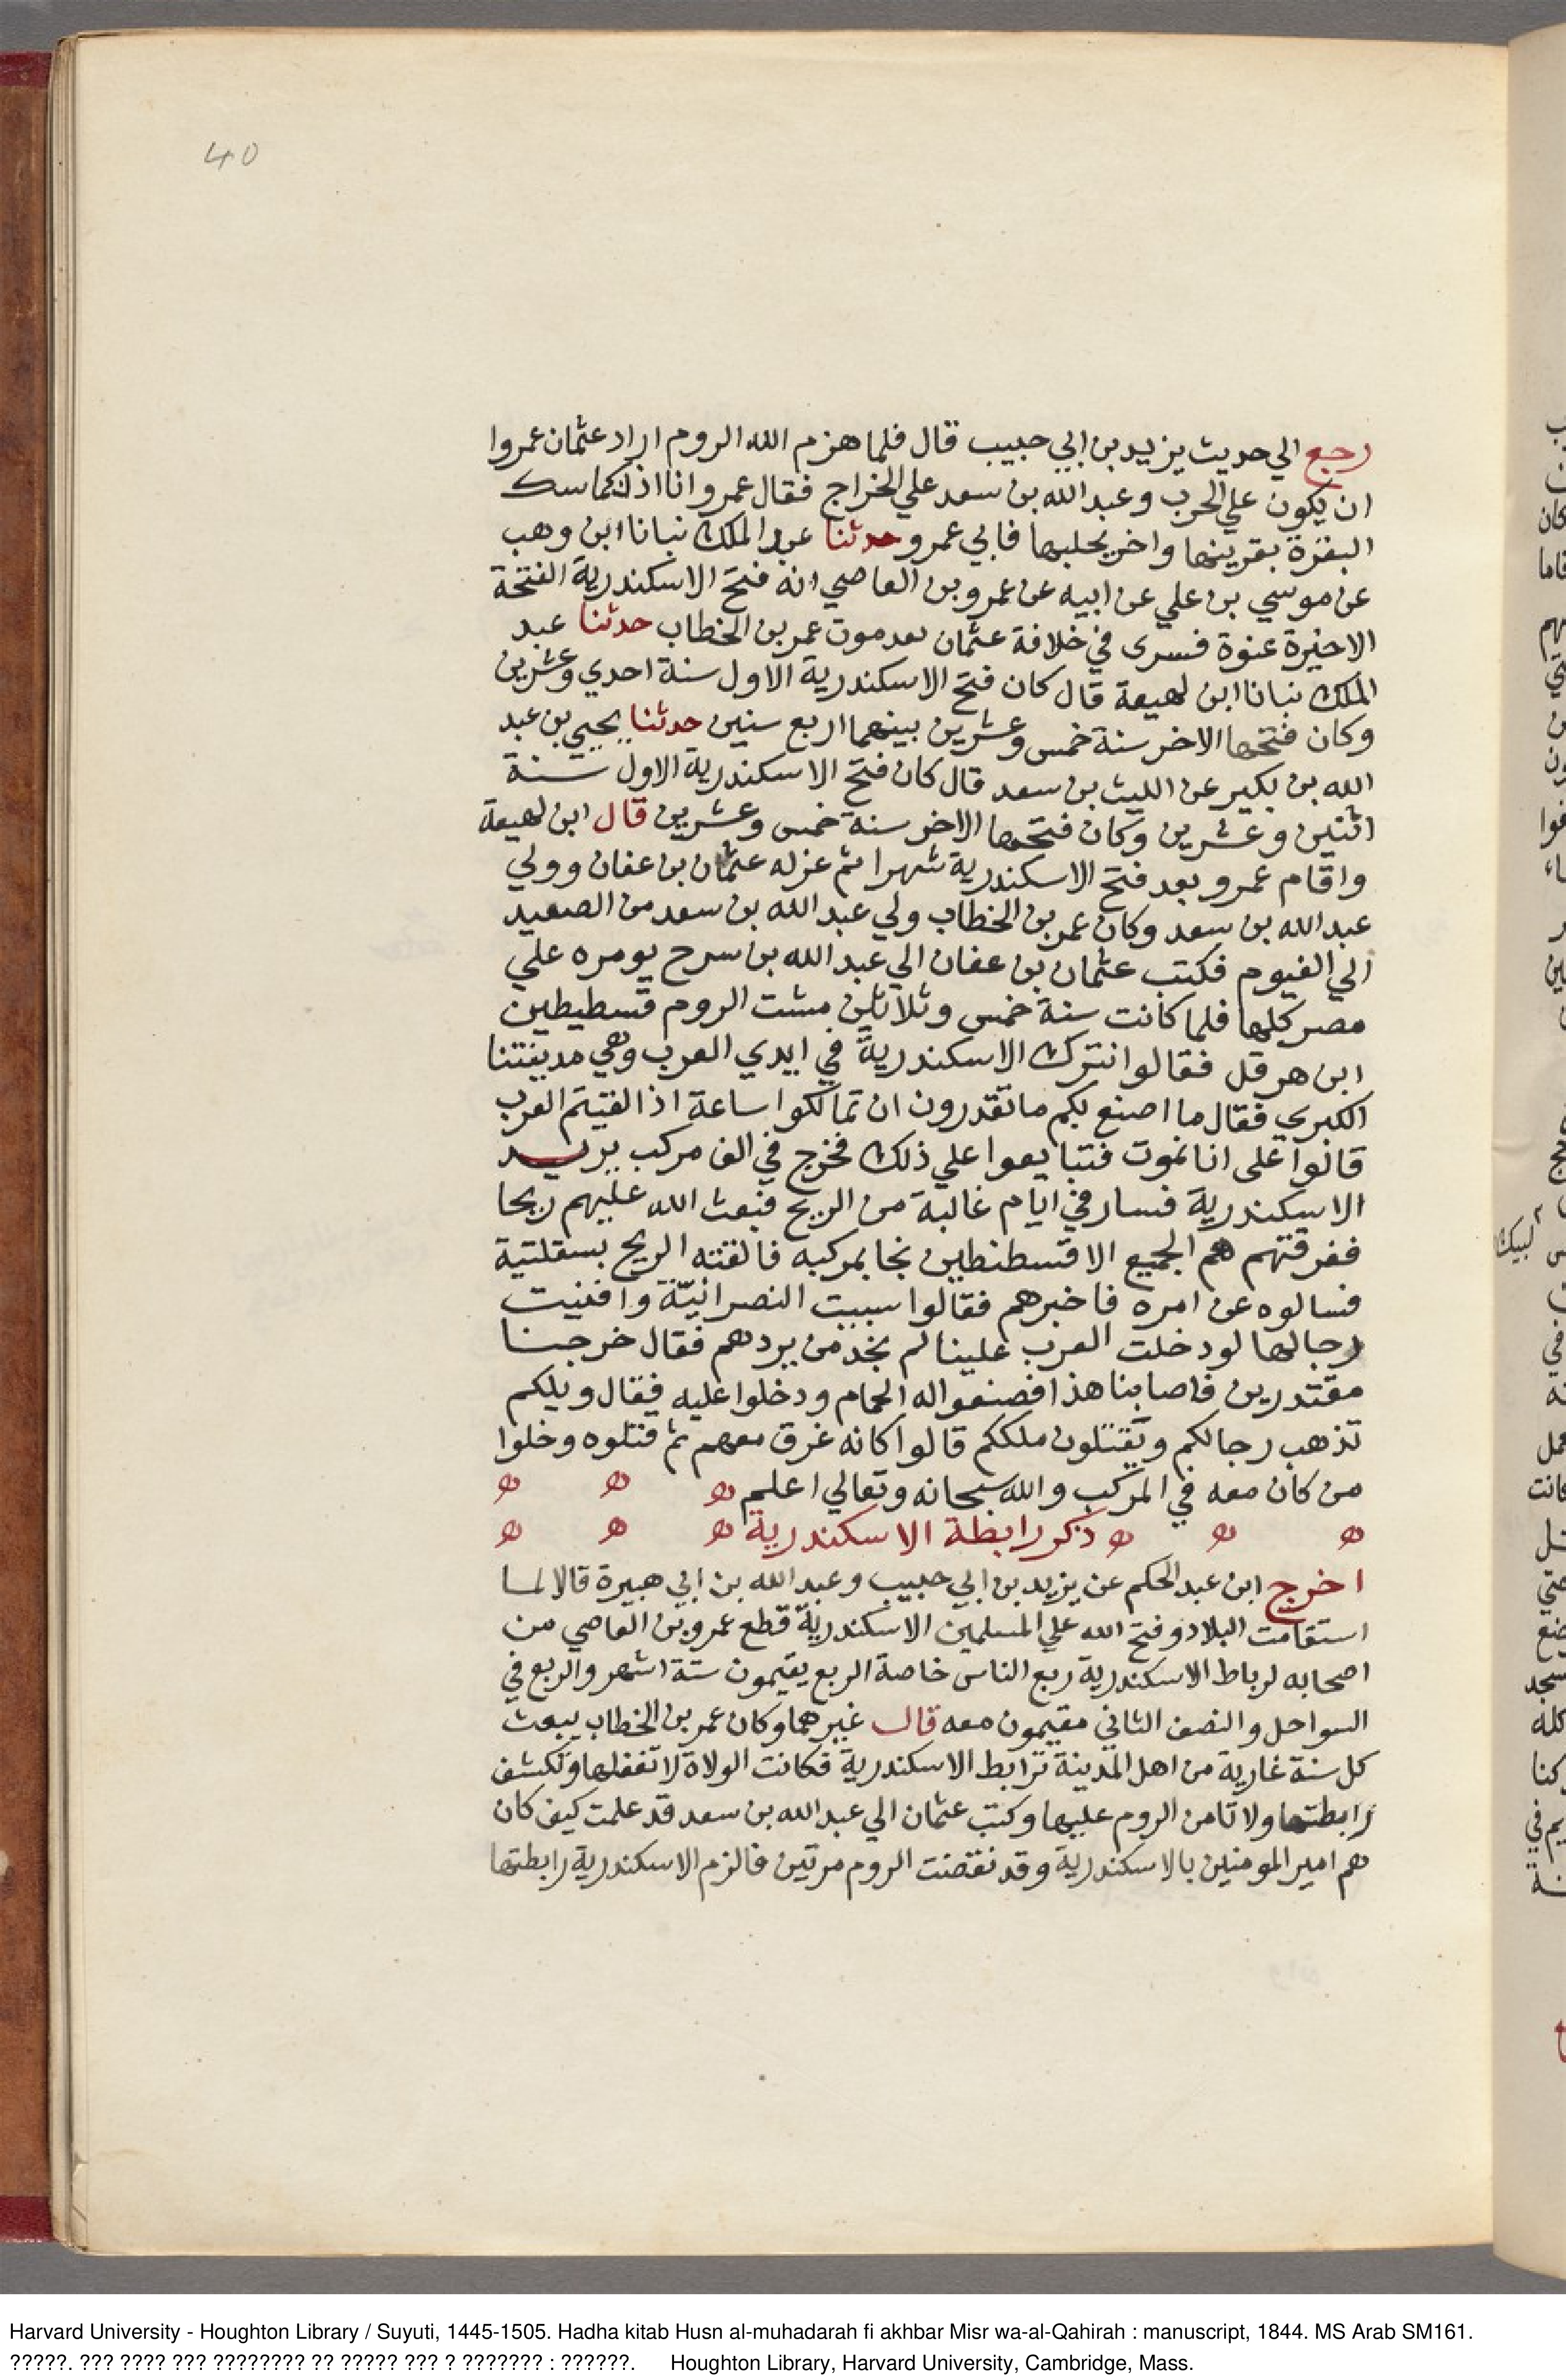 40
رجع الي حديث يزيد بن ابي حبيب قال فلما هزم الله الروم اراد عثمان عمروا
ان يكون علي الحرب وعبد الله بن سعد علي الخراج فقال عمرو انا اذا كماسك
البقرة بقرينها واخر يحلبها فابي عمرو حدثنا عبد الملك نبانا ابن وهب
عن موسي بن علي عن ابيه عن عمرو بن العاصي انه فتح الاسكندرية الفتحة
الاخيرة عنوة فسرى في خلافة عثمان بعد موت عمر بن الخطاب حدثنا عبد
الملك نبانا ابن لهيعة قال كان فتح الاسكندرية الاول سنة احدي وعشرين
وكان فتحها الاخر سنة خمس وعشرين بينهما اربع سنين حدثنا يحيي بن عبد
الله بن بكير عن الليث بن سعد قال كان فتح الاسكندرية الاول سنة
اثنين وعشرين وكان فتحها الاخر سنة خمس وعشرين قال ابن لهيعة
واقام عمرو بعد فتح الاسكندرية شهرا ثم عزله عثمان بن عفان وولي
عبد الله بن سعد وكان عمر بن الخطاب ولي عبد الله بن سعد من الصعيد
الي الفيوم فكتب عثمان بن عفان الي عبد الله بن سرح يومره علي
مصر كلها فلما كانت سنة خمس وثلاثين مشت الروم قسطيطين
ابن هرقل فقالوا نترك الاسكندرية في ايدي العرب وهي مدينتنا
الكبري فقال ما اصنع بكم ما تقدرون ان تمالكوا ساعة اذا لقيتم العرب
قالوا على انا نموت فتبايعوا علي ذلك فخرج في الف مركب يريد
الاسكندرية فسار في ايام غالبة من الريح فبعث الله عليهم ريحا
ففرقتهم هم الجميع الا قسطنطين نجا بمركبه فالقته الريح بسقلتية
فسالوه عن امره فاخبرهم فقالوا سببت النصرانية وافنيت
رجالها لو دخلت العرب علينا لم نجد من يردهم فقال خرجنا
مقتدرين فاصابنا هذا فصنعوا له الحمام ودخلوا عليه فقال ويلكم
تذهب رجالكم وتقتلون ملككم قالوا كانه غرق معهم ثم قتلوه وخلوا
من كان معه في المركب والله سبحانه وتعالي اعلم ه ه ه
ه ه ه ذكر رابطة الاسكندرية ه ه ه
اخرج ابن عبد الحكم عن يزيد بن ابي حبيب وعبد الله بن ابي هبيرة قالا لما
استقامت البلاد وفتح الله علي المسلمين الاسكندرية قطع عمرو بن العاصي من
اصحابه لرباط الاسكندرية ربع الناس خاصة الربع يقيمون ستة اشهر والربع في
السواحل والنصف الثاني مقيمون معه قال غيرهما وكان عمر بن الخطاب يبعث
كل سنة غارية من اهل المدينة ترابط الاسكندرية فكانت الولاة لا تغفلها وتكشف
رابطتها ولا تامن الروم عليها وكتب عثمان الي عبد الله بن سعد قد علمت كيف كان
هم امير المومنين بالاسكندرية وقد نقضت الروم مرتين فالزم الاسكندرية رابطتها
Harvard University - Houghton Library / Suyuti, 1445-1505. Hadha kitab Husn al-muhadarah fi akhbar Misr wa-al-Qahirah : manuscript, 1844. MS Arab SM161.
?????. ??? ???? ??? ???????? ?? ????? ??? ? ??????? : ??????. Houghton Library, Harvard University, Cambridge, Mass.